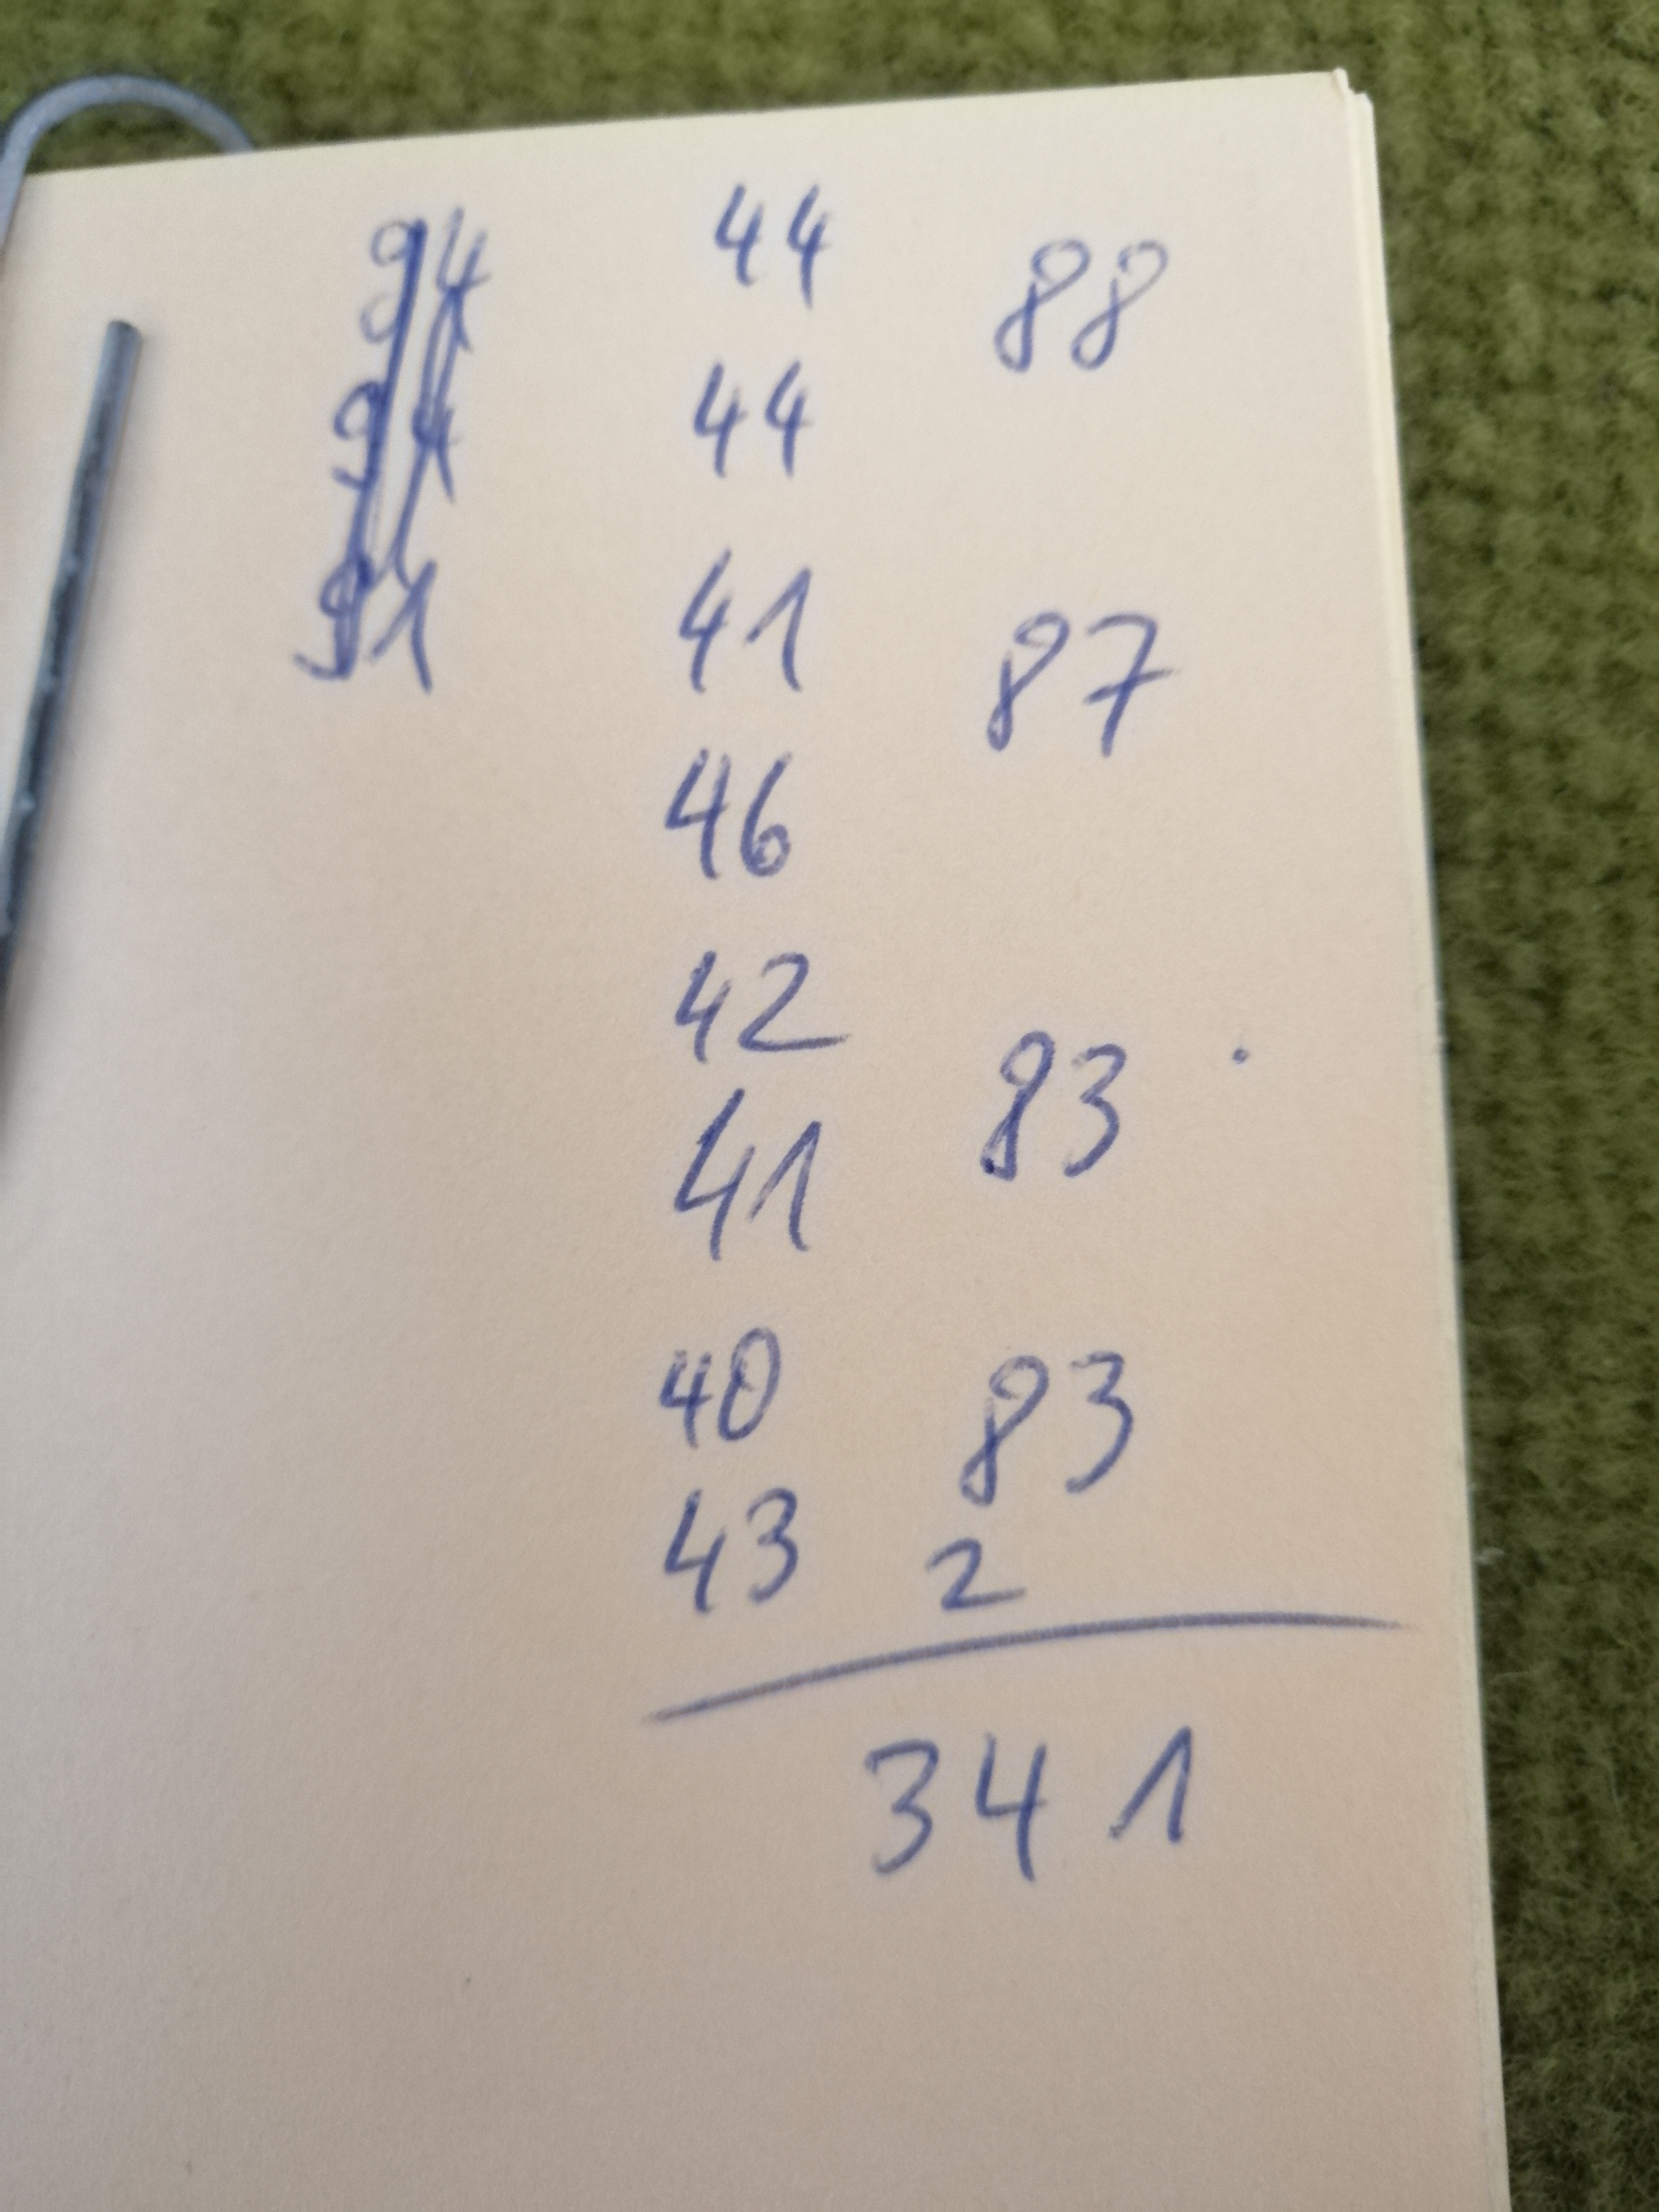 94 44 88
94 44
91 41 87
46
42 83
41
40 83
43 2
341